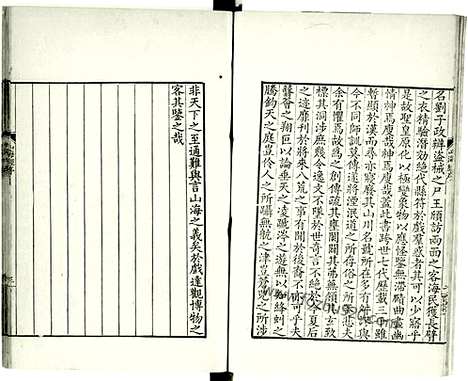 名劉子政辨盜械之尸王頎訪兩面之客海民獲長臂
之衣精驗潛效絶代縣符於戲羣惑者其可以少寤乎
是故聖皇原化以極變象物以應怪鑒無滯賾曲盡幽
情神焉廋哉神焉廋哉蓋此書跨世七代歷載三千雖
暫顯於漢而尋亦寢廢其山川名號所在多有舛謬與
今不同師訓莫傳遂將湮泯道之所存俗之所喪悲夫
余有懼焉故爲之創傳疏其壅閡闢其茀蕪領其玄致
標其洞涉庶幾令逸文不墜於世奇言不絶於今夏后
之迹靡刊於將來八荒之事有聞於後裔不亦可乎夫
蘙薈之翔叵以論垂天之凌蹏涔之遊無以知絳虬之
騰鈞天之庭豈伶人之所躡無航之津豈蒼兕之所涉
非天下之至通難與言山海之義矣於戲達觀博物之
客其鑒之哉